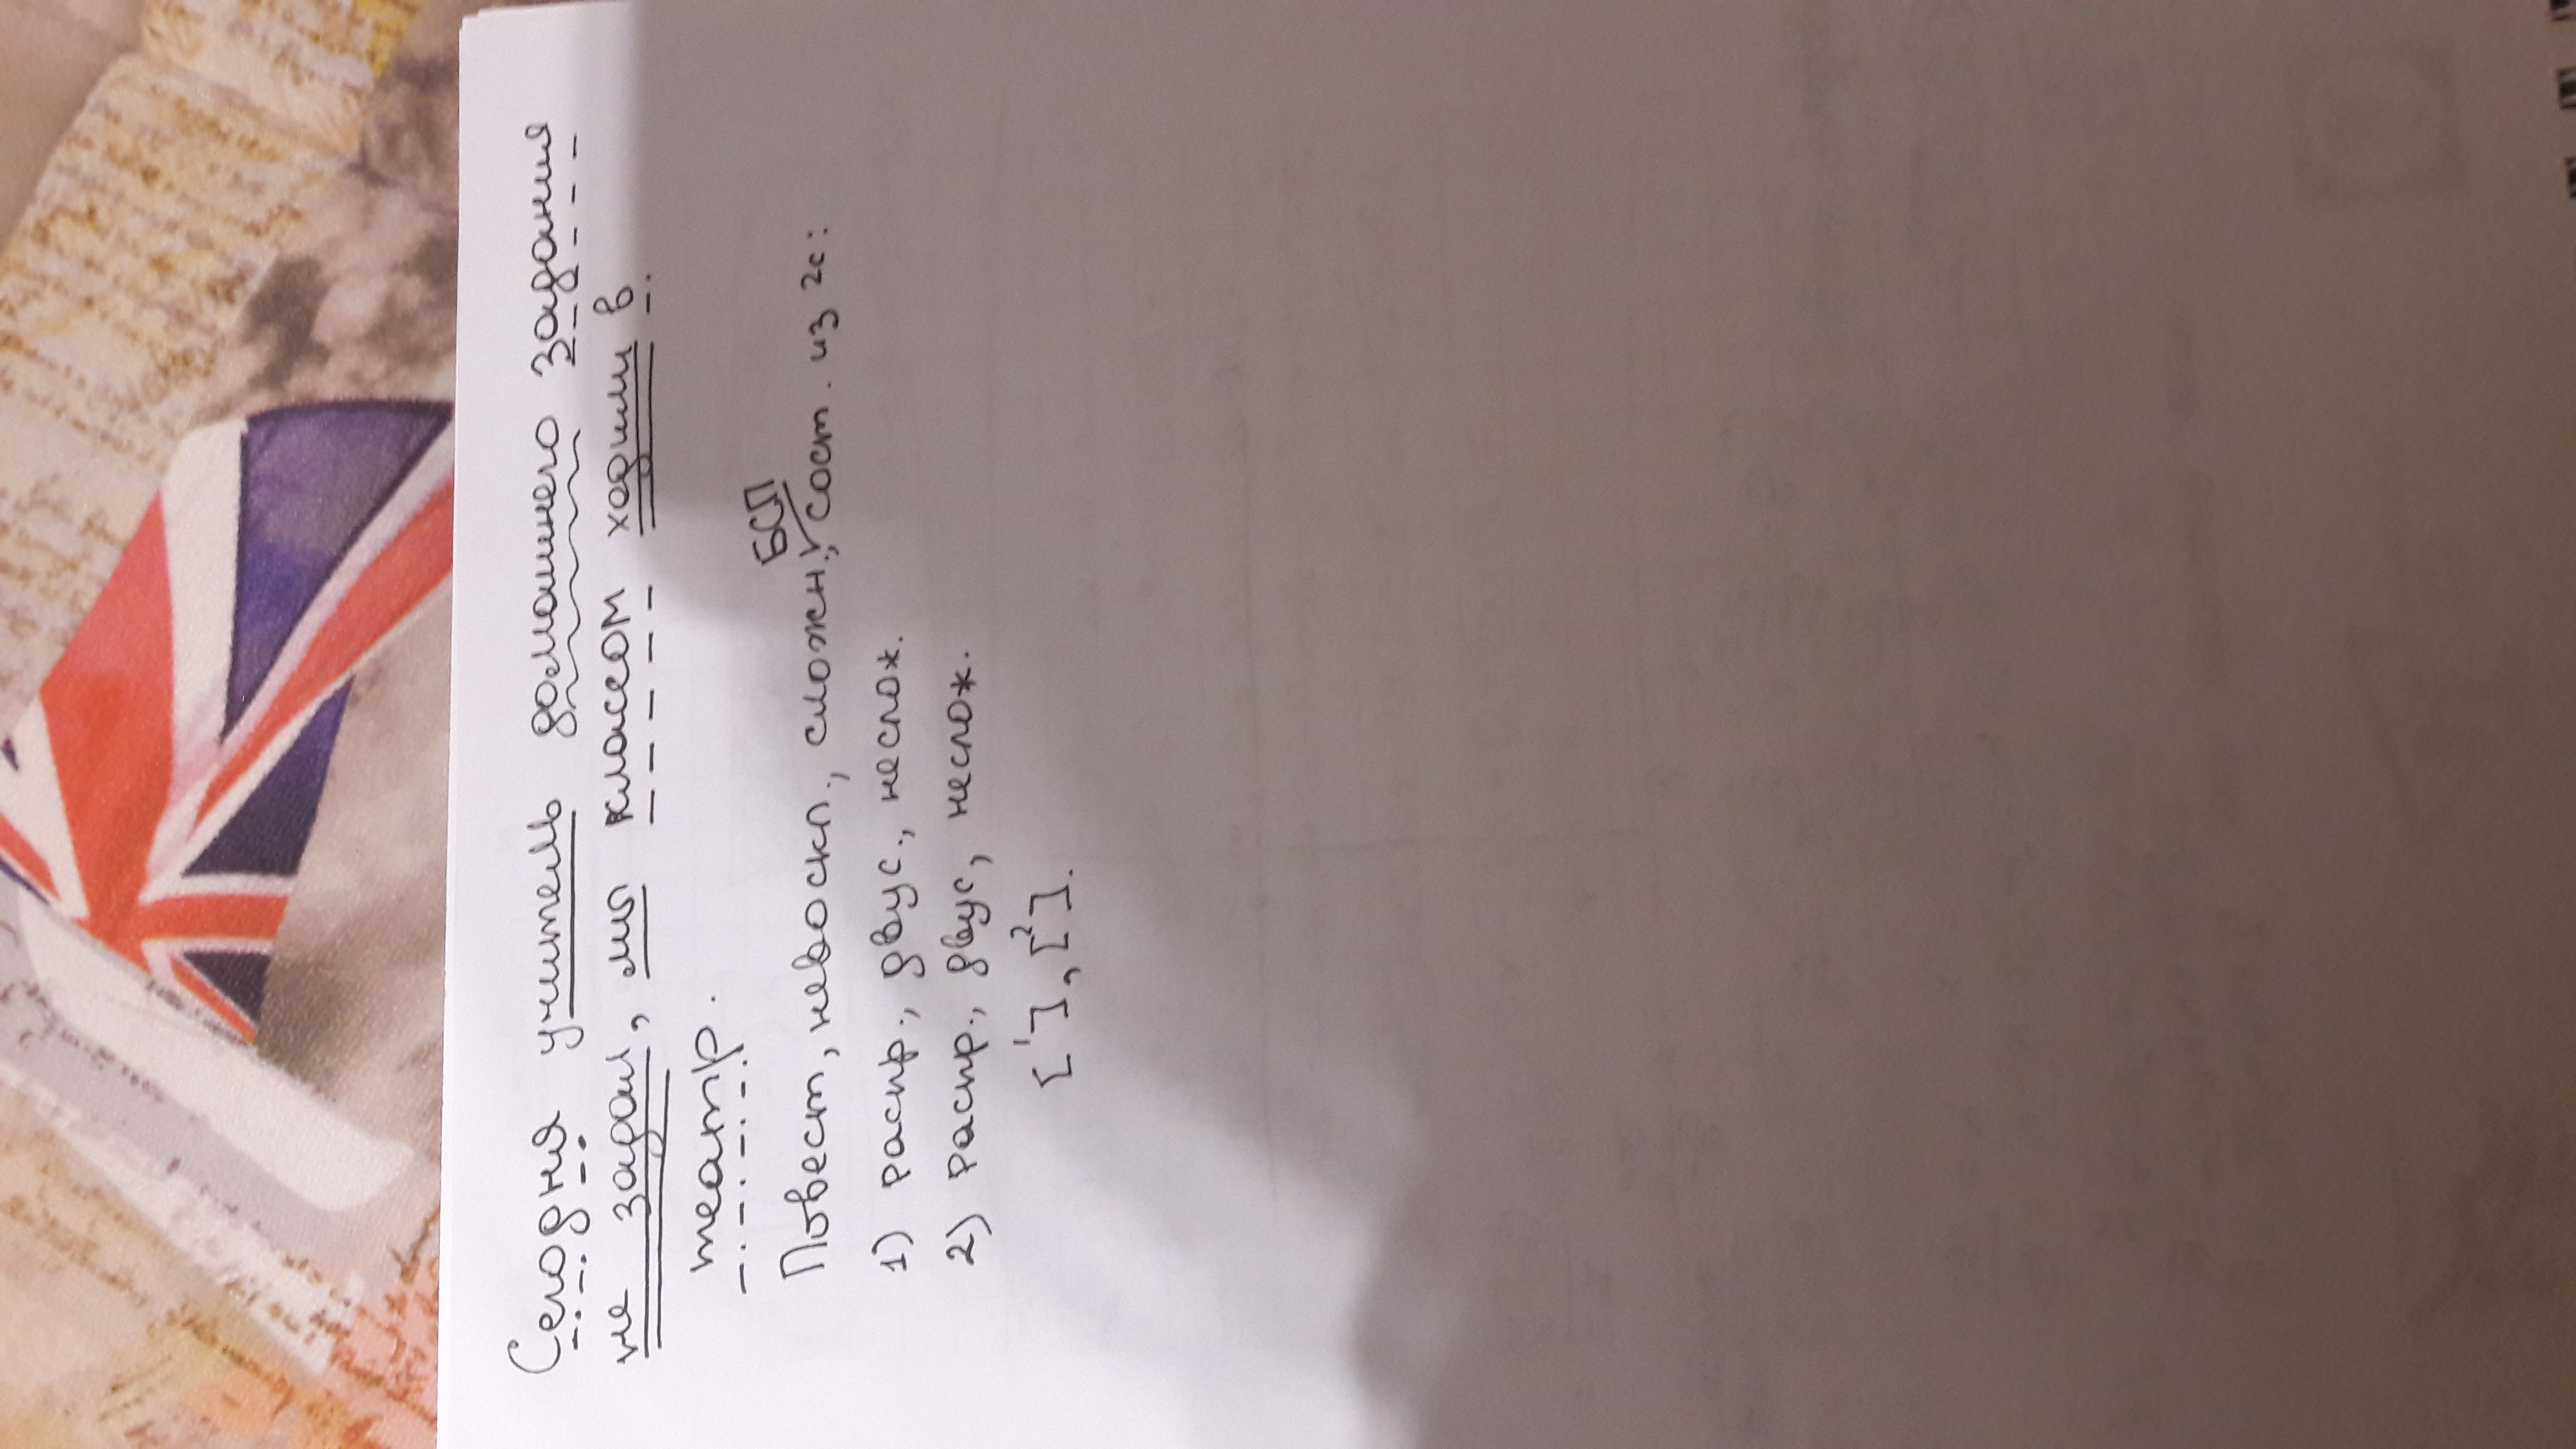 Сегодня учитель домашнего задания
не задал, мы классом ходили в
театр.
БСП
Повест, невоскл., сложн., сост. из 2с:
1) распр., двус., неслож.
2) распр., двус, неслож.
[1], [2].